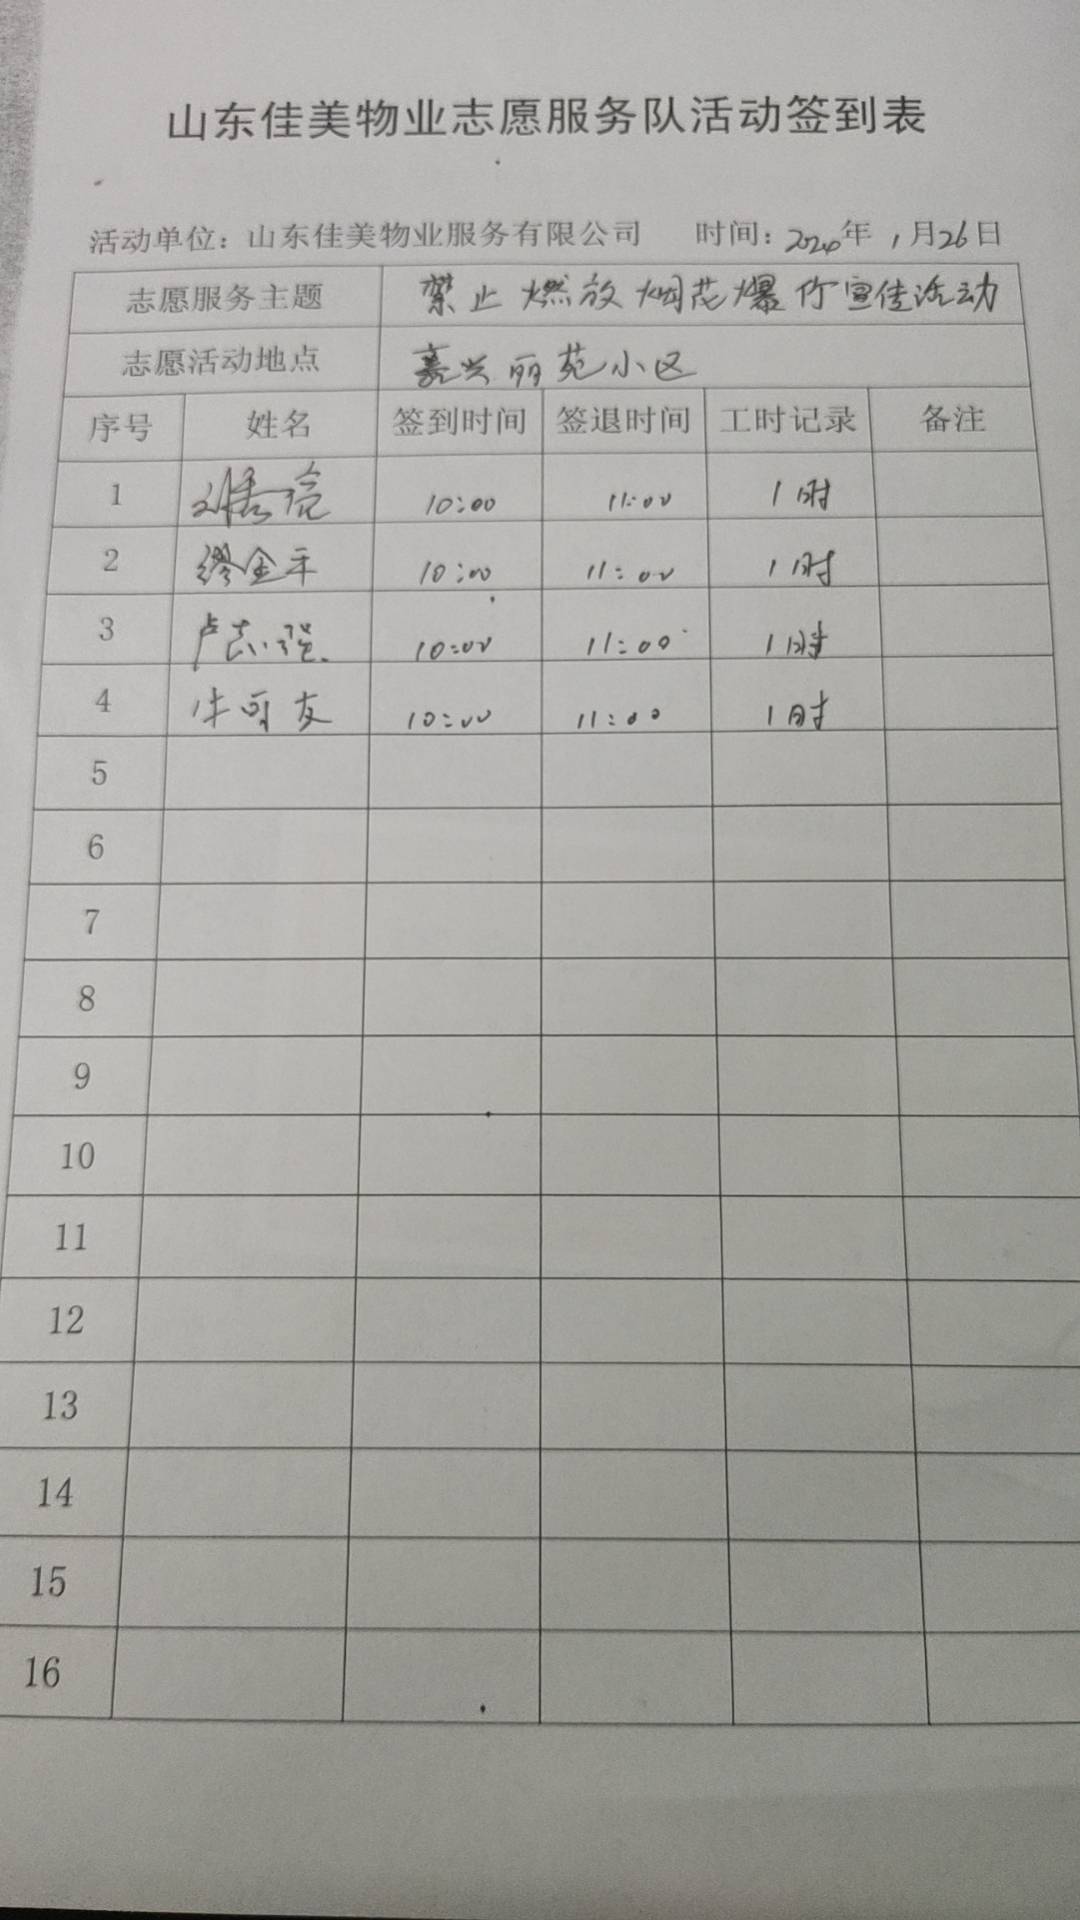 山东佳美物业志愿服务队活动签到表
活动单位：山东佳美物业服务有限公司 时间：2024年1月26日
志愿服务主题 禁止燃放烟花爆竹宣传活动
志愿活动地点 嘉兴丽苑小区
序号 姓名 签到时间 签退时间 工时记录 备注
1 10:00 11:00 1时
2 缪金平 10:00 11:00 1时
3 卢志强 10:00 11:00 1时
4 牛可友 10:00 11:00 1时
5
6
7
8
9
10
11
12
13
14
15
16